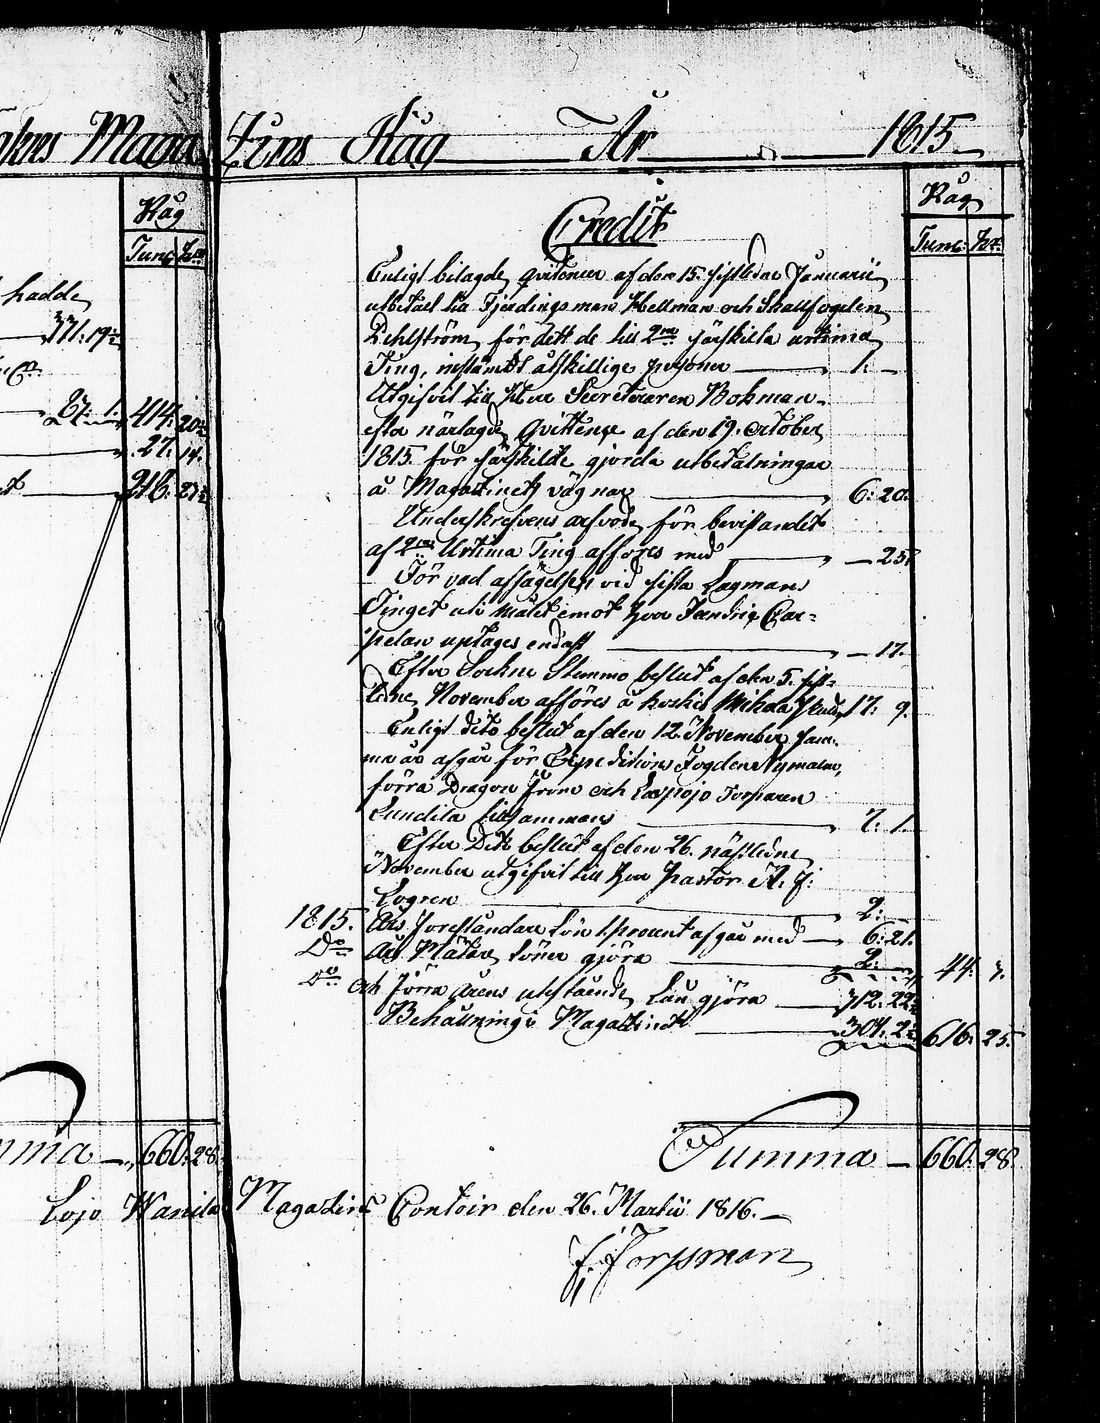 Maga Zins Råg År 1815
Råg
Råg
Tun: 
Tun: 
Credit
hadde
371: 19½
87: 1. 414: 20½
27: 14.
218: 23½
Enligt bilagde qvittencer af den 15. sistledne Januarii
utbetalt till Fjerdingsman Hellman och Skallfogden
Dehlström för det de till 2ne särskilta urtima
Ting, instämdt åtskillige personer 1: —
Utgifvit till Herr Secreteraren Bohman
efter närlagde Qvittence af den 19. October
1815. för särskilde gjorda utbetalningar
å Magazinets vägnar 6: 20.
Underskrefvens arfvode för bevistandet
af 2ne Urtima Ting afföres med — 25.
För vad afsägelsen vid sista Lagmans
Tinget uti målet emot Herr Fendric Car-
pelan uptages endast — 17.
Efter Sockne Stemmo beslut af den 5. sist-
ledne November afföres å 17: 9.
Enligt dito beslut af den 12. November sam-
ma år afgår för Expeditions Fogden Nyman,
förra Dragon och Torparen
Lundila tillsammans 7: 1.
Efter Dito beslut af den 26. näst­ledne
November utgifvit till Herr Pastor A. J:
Logren 2: —
1815. Års Föreståndare Lön 1 procent afgår med 6: 21.
Do Års Mätare Löner gjöra 2: — 44: 3.
Do och Förra årens utestående Lån gjöra 312: 22½
Behållning i Magazinet 304: 2½ 616: 25.
Summa 660: 28. Summa — 660: 28.
Lojo Magazins Contoir den 26. Martii 1816.
F. Forssman